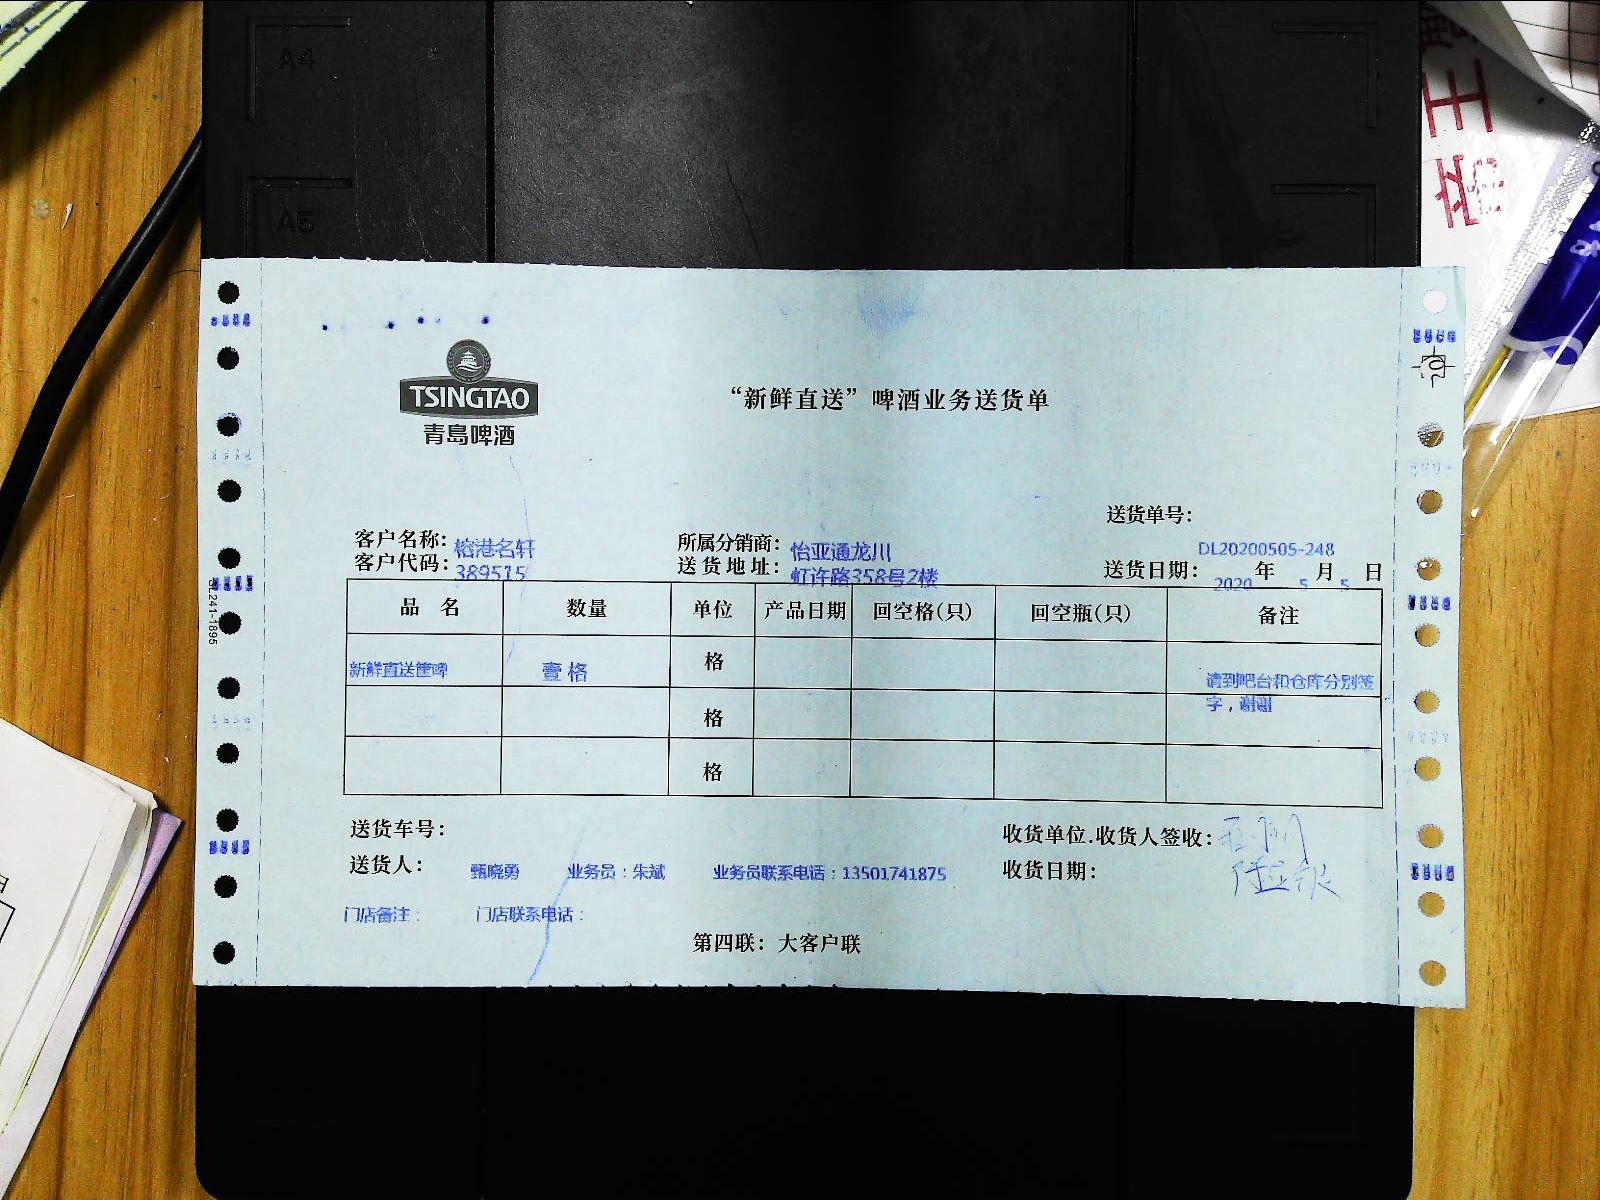 A4
A5
TSINGTAO
青岛啤酒
“新鲜直送”啤酒业务送货单
送货单号：
DL20200505-248
客户名称：榕港名轩
所属分销商：怡亚通龙川
客户代码：389515
送货地址：虹许路358号2楼
送货日期：2020年5月5日
品 名 数量 单位 产品日期 回空格(只) 回空瓶(只) 备注
新鲜直送筐啤 壹格 格 请到吧台和仓库分别签
字，谢谢
格
格
送货车号：
收货单位.收货人签收：
送货人：甄晓勇 业务员：朱斌 业务员联系电话：13501741875
收货日期：
门店备注： 门店联系电话：
第四联：大客户联
SL241-1895